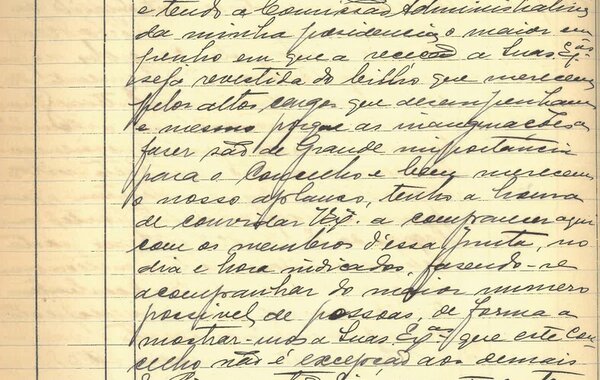 e tendo a Comissão Administrativa
da minha presidencia o maior em-
penho em que a recéção a Suas Exas.
seja revestida do brilho que merecem
pelos altos cargos que desempenham
e mesmo porque as inaugurações a
fazer são de Grande importancia
para o Concelho e bem merecem
o nosso aplauso, tenho a honra
de convidar V. Exa. a comparecer aqui
com os membros d'essa Junta, no
dia e hora indicados, fazendo-se
acompanhar do maior numero
possivel de pessoas, de forma a
mostrar-mos a Suas Exas. que este con-
celho não é excepção aos demais